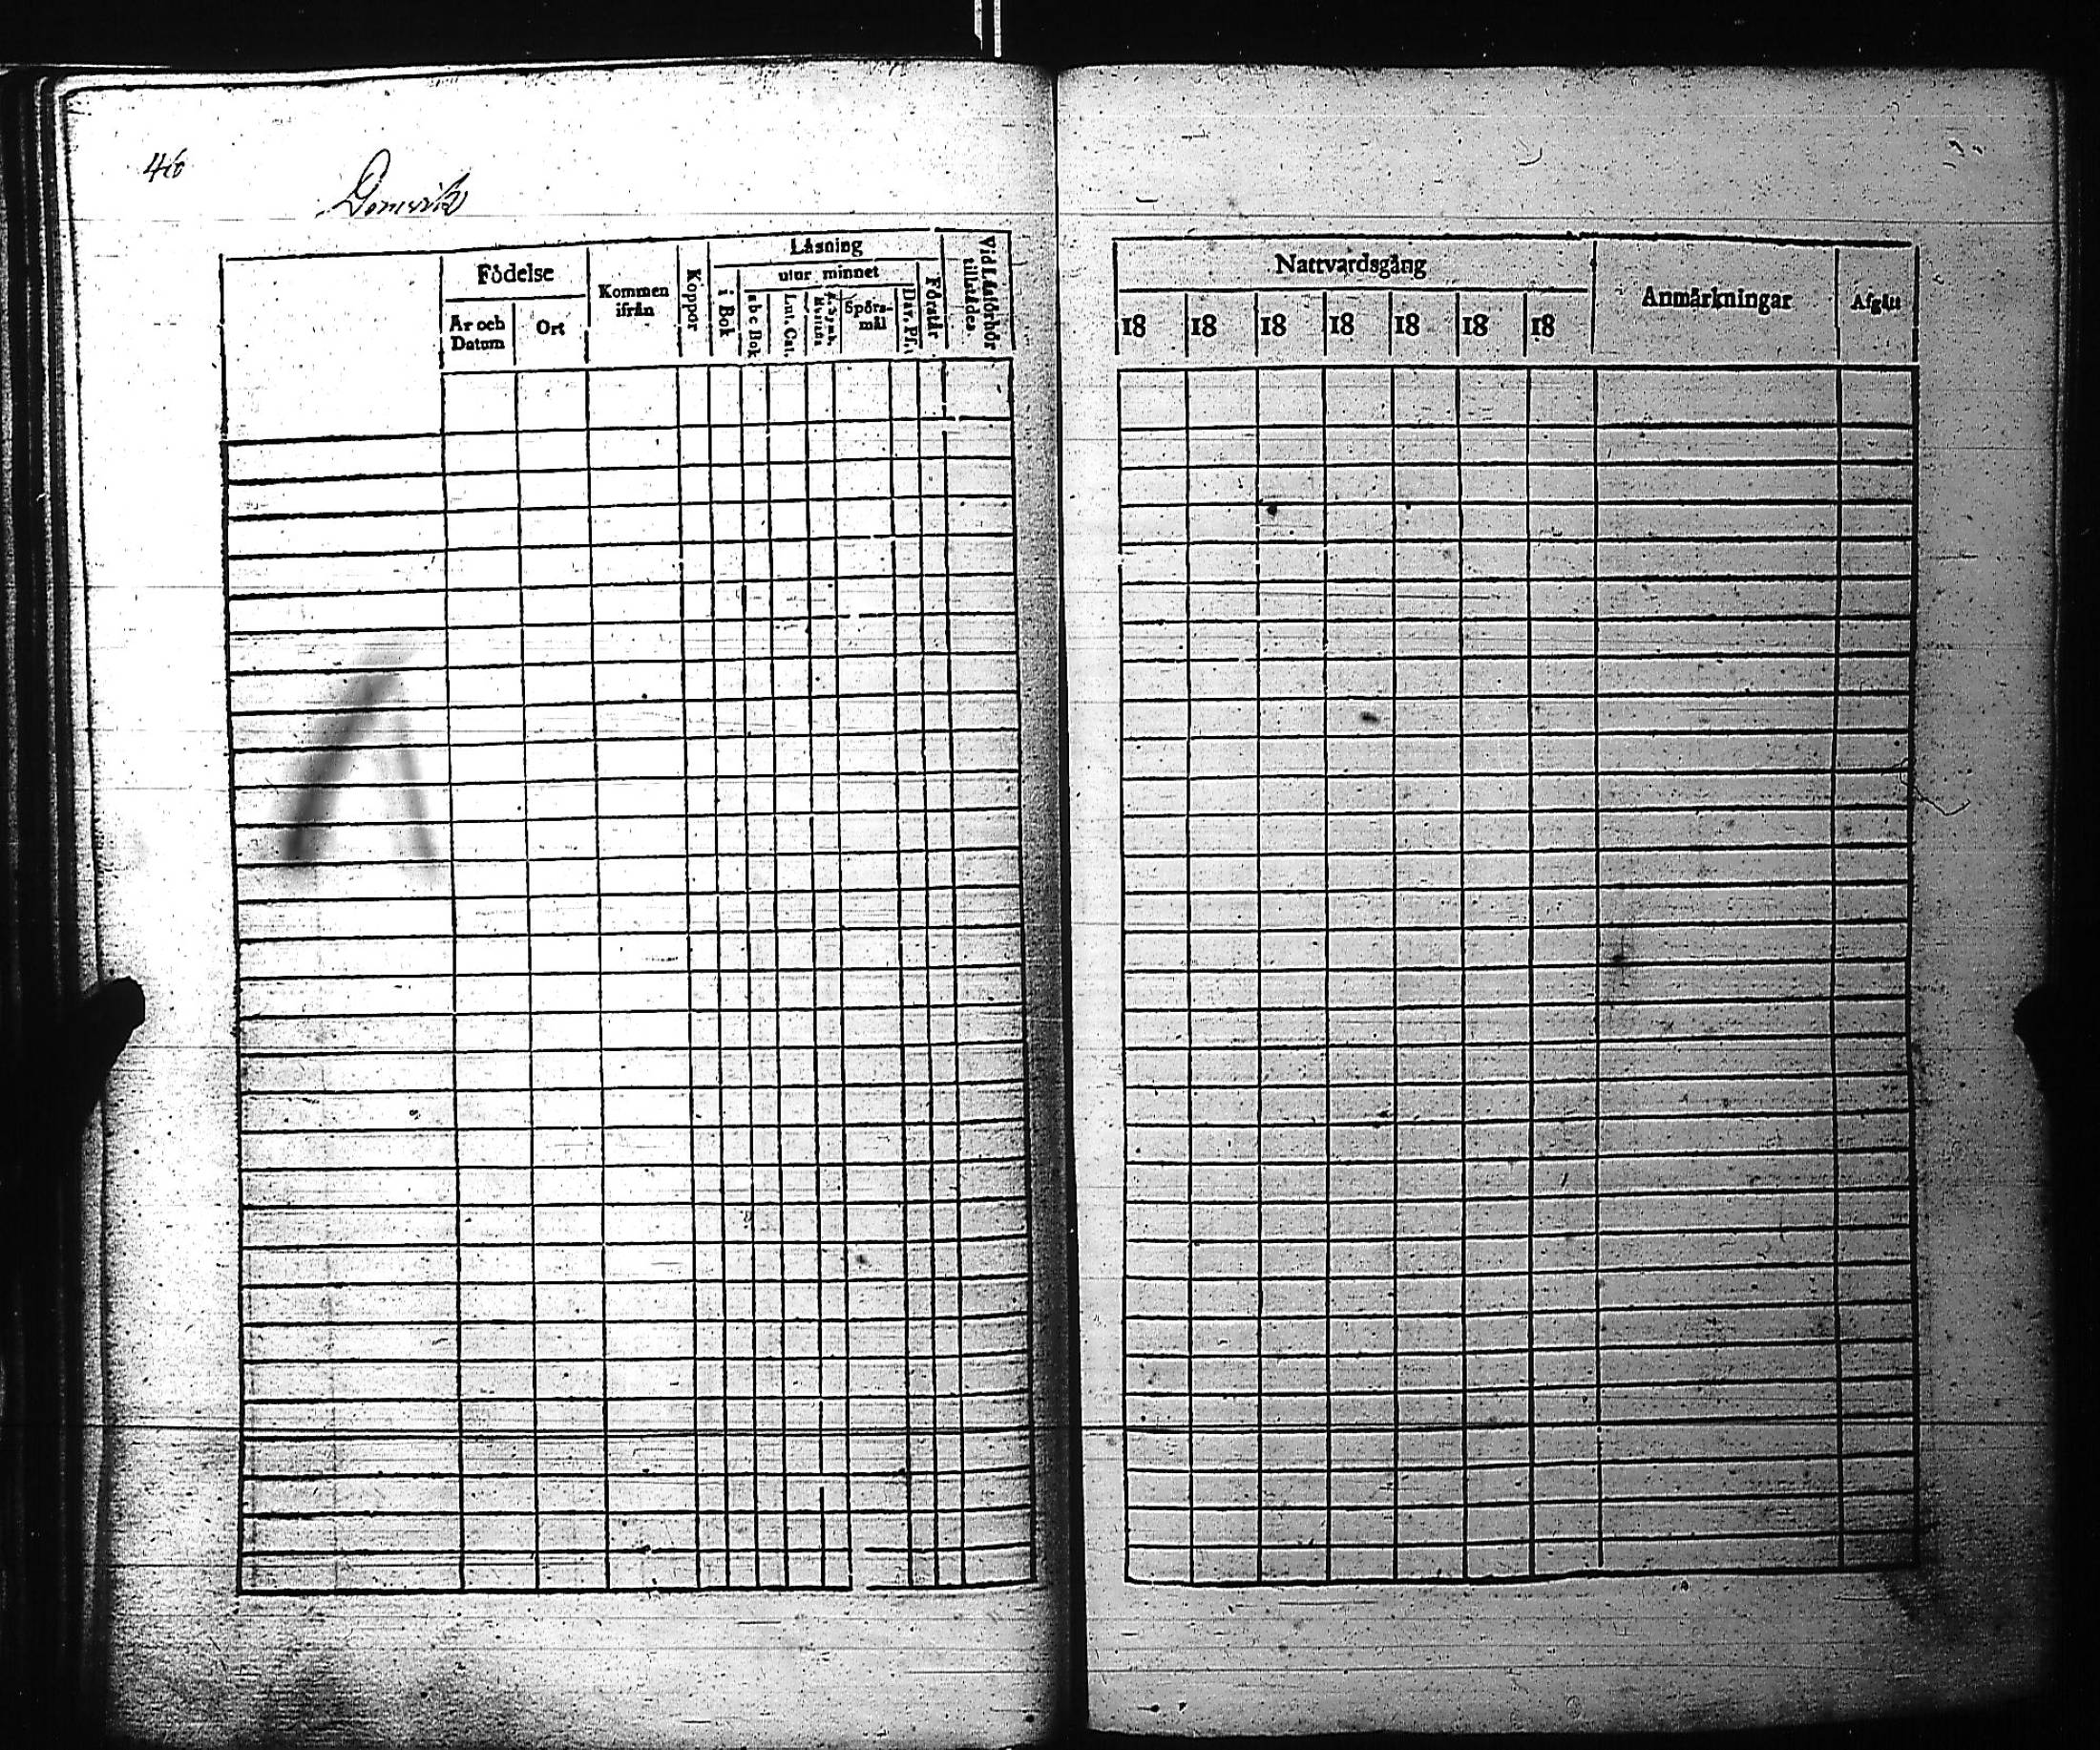 46
Domvik
Födelse
Kommen ifrån
Koppor
Läsning
utur minnet
Ar och Datum
Ort
i Bok
abc Bok
Lut. Cat.
Spörs-
mål
Dav. Ps.
Förstår
Vid Läsförhör
tillstädes.
Nattvardsgång
Anmärkningar
Afgått
18 18 18 18 18 18 18